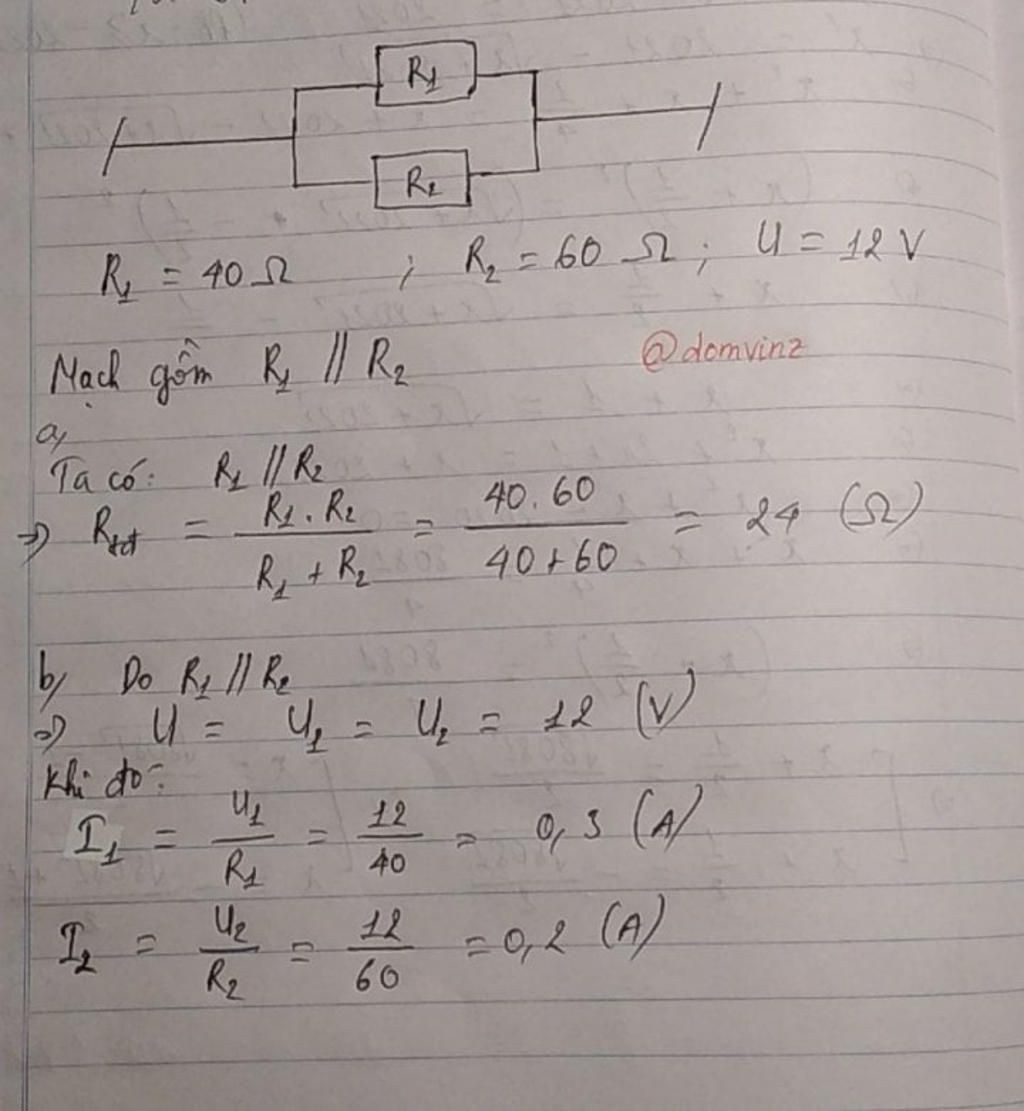 R₁
R₂
R₁ = 40 Ω ; R₂ = 60 Ω ; U = 12 V
Mạch gồm R₁ // R₂
@domvinz
a,
Ta có: R₁ // R₂
=> Rtđ = (R₁ . R₂)/(R₁ + R₂) = (40 . 60)/(40 + 60) = 24 (Ω)
b, Do R₁ // R₂
=> U = U₁ = U₂ = 12 (V)
Khi đó:
I₁ = U₁/R₁ = 12/40 = 0,3 (A)
I₂ = U₂/R₂ = 12/60 = 0,2 (A)